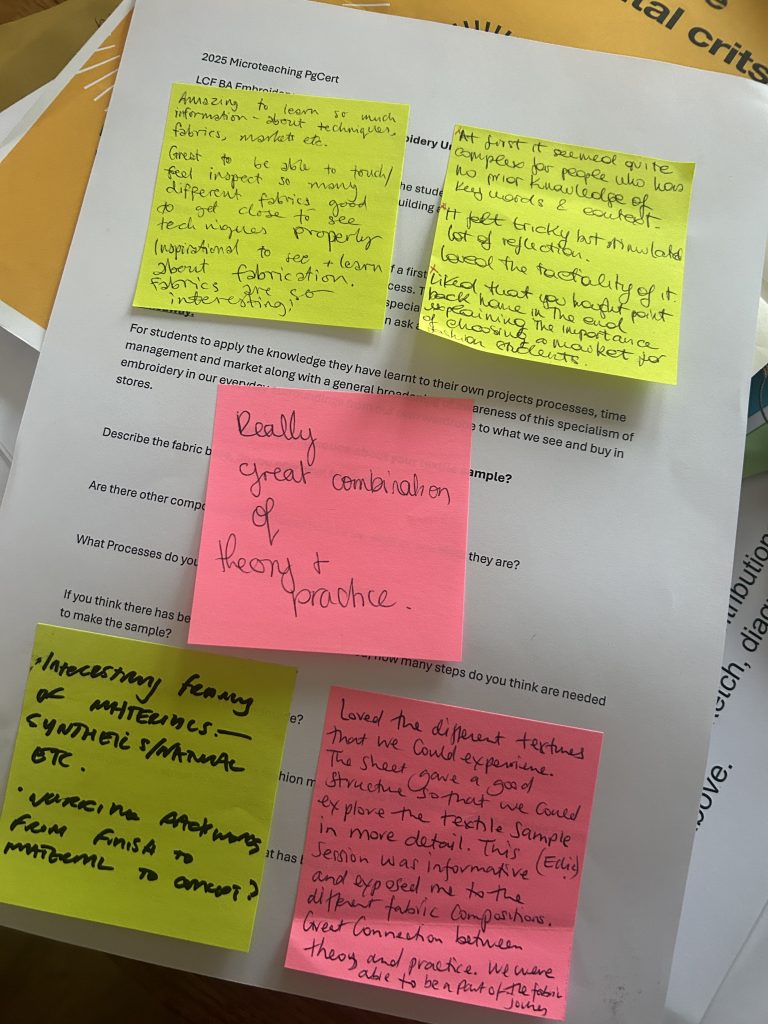 tal crits
2025 Microteaching PgCert
LCF BA Embroider
idery Un
he stude
uilding a
Amazing to learn so much
information - about techniques,
fabrics, markets etc.
Great to be able to touch/
feel inspect so many
different fabrics good
to get close to see
techniques properly
Inspirational to see + learn
about fabrication.
fabrics are so
interesting!
At first it seemed quite
complex for people who has
no prior knowledge of
key words & context.
It felt tricky but stimulated
lot of reflection.
loved the tactiality of it.
Liked that you bought point
back home in the end
explaining the importance
of choosing a market for
fashion students.
of a first
cess. T
specia
an ask a
For students to apply the knowledge they have learnt to their own projects processes, time
management and market along with a general broadening awareness of this specialism of
embroidery in our everyday to what we see and buy in
stores.
Really
great combination
of
theory +
practice.
Describe the fabric b ample?
Are there other compo they are?
What Processes do you
If you think there has be how many steps do you think are needed
to make the sample?
e?
hion m
at has b
· Interesting framing
of materials —
synthetis/natural
etc.
· Working backwards
from finish to
material to concept?
Loved the different textures
that we could experience.
The sheet gave a good
structure so that we could
explore the textile sample
in more detail. This
session was informative
and exposed me to the
different fabric compositions.
Great Connection between
theory and practice. We were
able to be a part of the fabric
journey
tribution
etch, diag
bove.